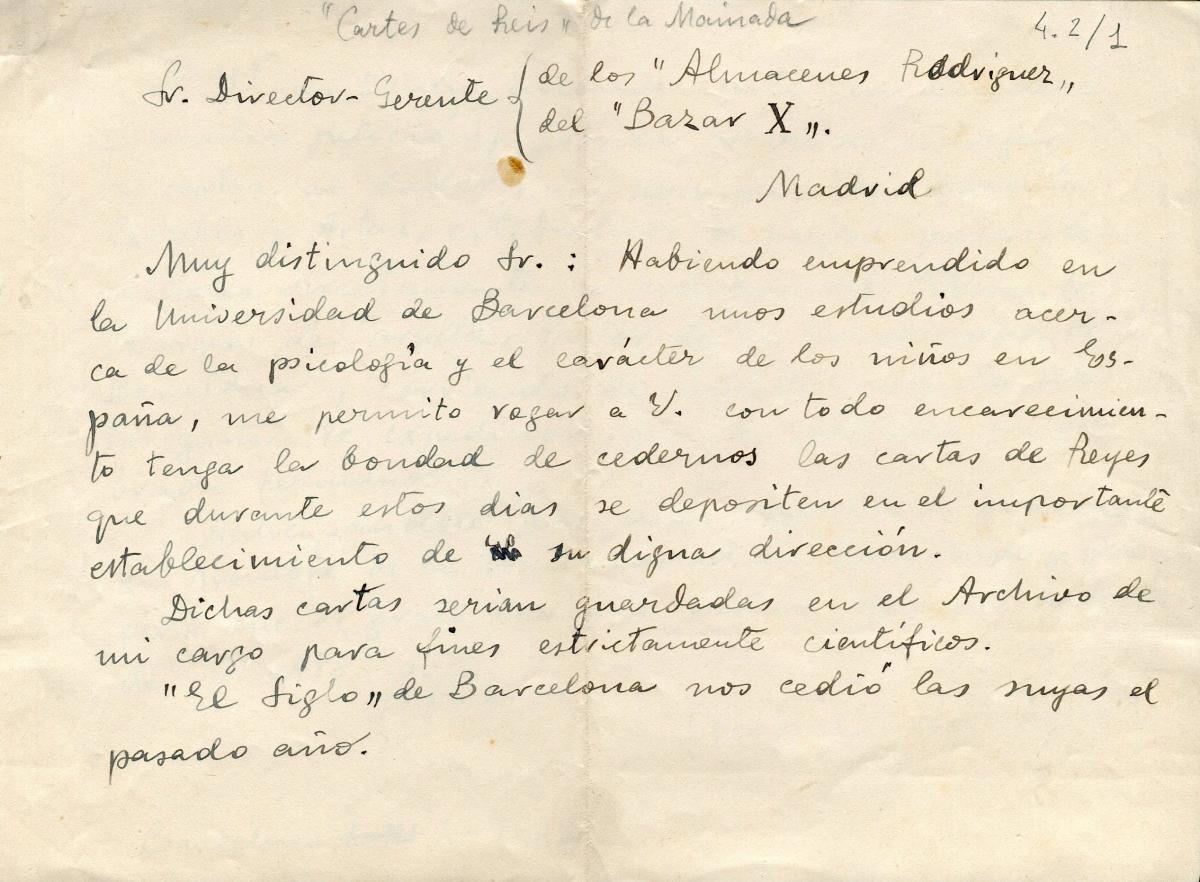 "Cartes de Reis" de la Mainada
4.2/1
Sr. Director-Gerente { de los "Almacenes Rodriguez"
del "Bazar X".
Madrid
Muy distinguido Sr.: Habiendo emprendido en
la Universidad de Barcelona unos estudios acer-
ca de la psicología y el carácter de los niños en Es-
paña, me permito rogar a V. con todo encarecimien-
to tenga la bondad de cedernos las cartas de Reyes
que durante estos dias se depositen en el importante
establecimiento de su digna dirección.
Dichas cartas serian guardadas en el Archivo de
mi cargo para fines estrictamente científicos.
"El Siglo" de Barcelona nos cedió las suyas el
pasado año.